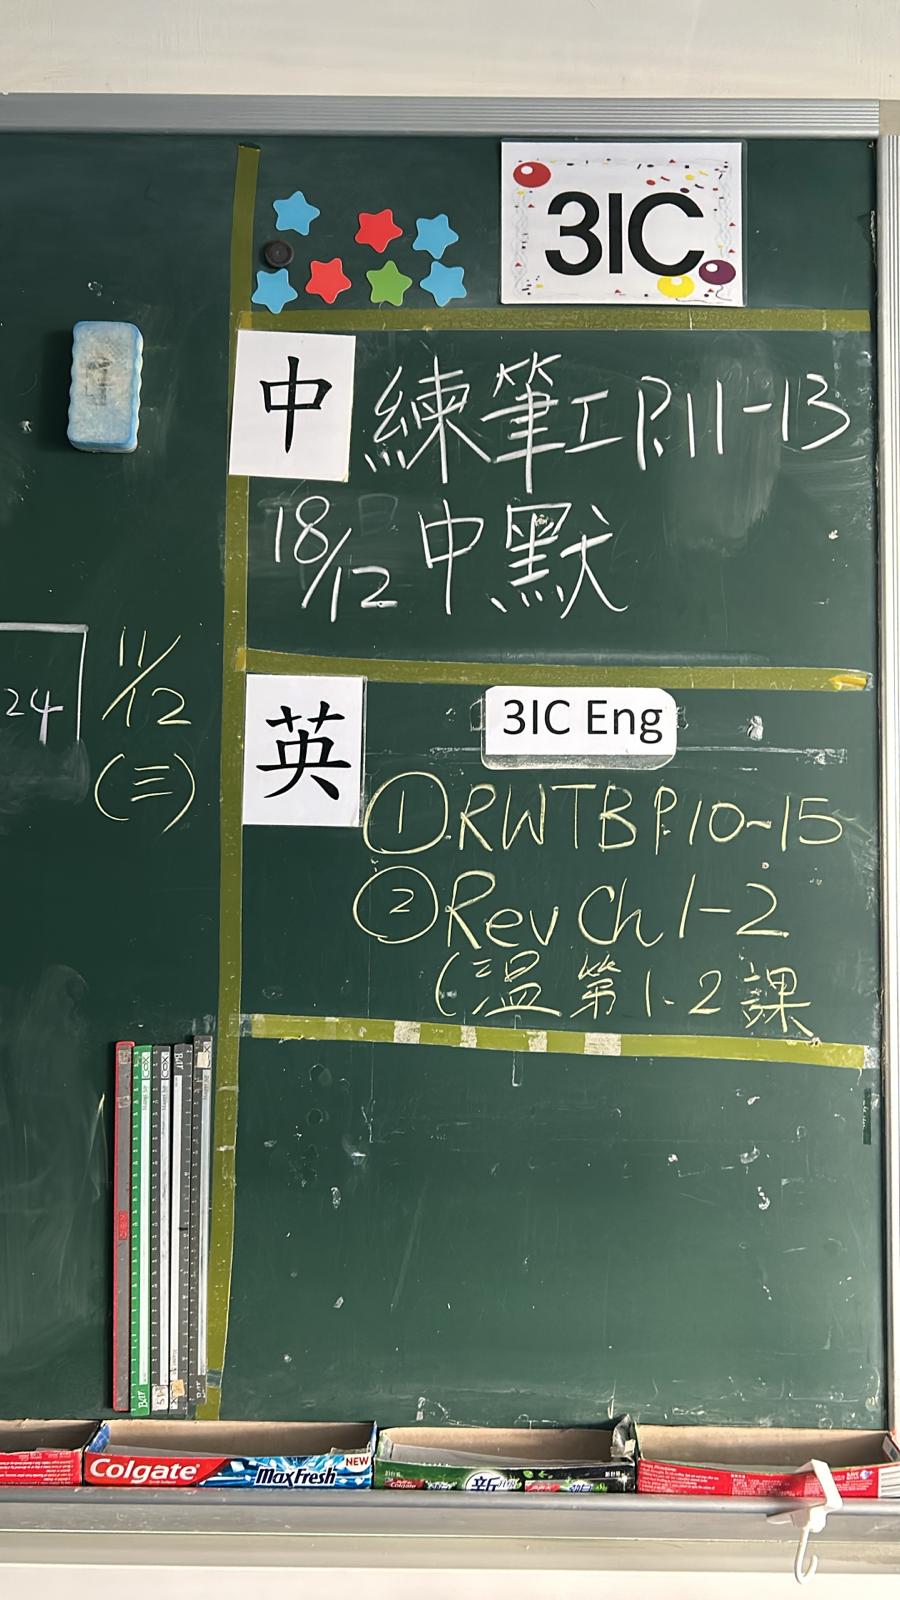 3IC
中 練筆工 P.11-13
18/12 中默
24
11/12
(三)
英
3IC Eng
① RWTB P.10~15
② Rev Ch 1-2
(溫第1-2課
Colgate
MaxFresh
NEW
新